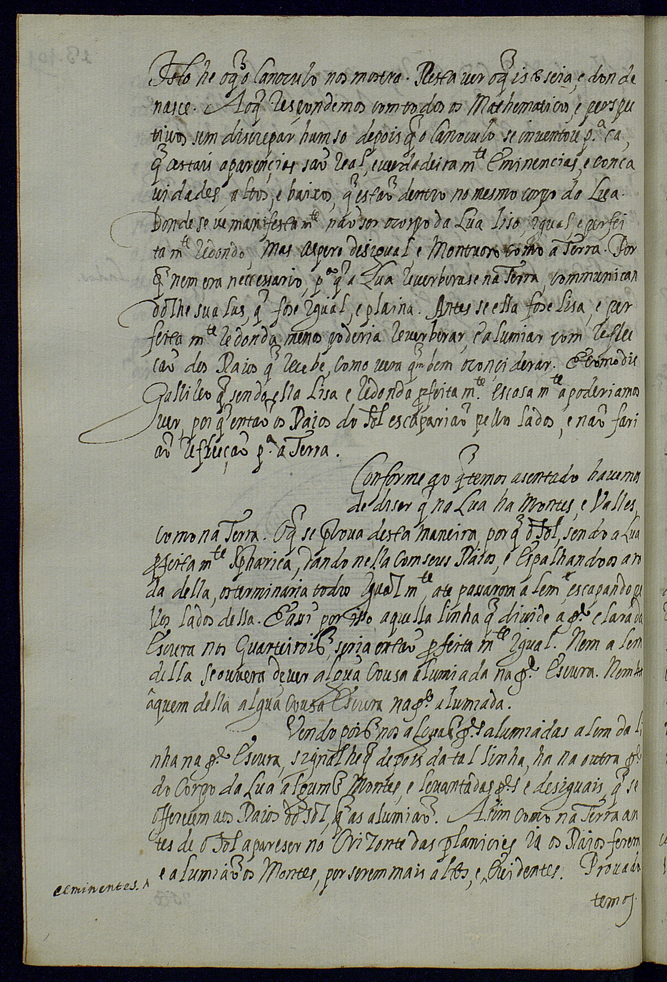 Isto he oq̃ o Canoculo nos mostra. Resta ver oq̃ isto seia, e donde
nasce. Aoq̃ Respondemos com todos os Mathematicos, e perspe
tivos sem discrepar hum so depois q̃ o Canoculo se inventou p.ª ca,
q̃ estas aparencias saõ reas, e verdadeiram.te Eminencias, e conca
uidades altos, e baixos, q̃ estaõ dentro no mesmo corpo da Lua.
Donde se ve manifestam.te naõ ser o corpo da Lua liso igual e perfei
tam.te redondo Mas aspero desigual e Montuoso como a Terra. Por
q̃ nem era necessario, p.ª q̃ a Lua reverberase na Terra, communican
dolhe sua Lus, q̃ fose igual, e plaina. Antes se ella fose Lisa, e per
feitam.te redonda menos poderia reverberar, e alumiar com refle
caõ dos Raios q̃ recebe, como vera q̃ bem o considerar. E como dis
Gallileo q̃ sendo ella Lisa e redonda p̱feitam.te Escasam.te a poderiamos
ver, porq̃ entaõ os Raios do Sol escapariaõ pellos lados, e naõ fari
aõ refleiçaõ p.ª a Terra.
Conforme ao q̃ temos asentado havemos
de diser q̃ na Lua ha Montes, e Valles,
como na Terra. Oq̃ se prova desta maneira, porq̃ o Sol, sendo a Lua
p̱feitam.te Spharica, dando nella com seus Raios, e Espalhandoos a ro
da della, os terminaria todos igualm.te, ate pasarem alem escapando pe
llos lados della. E assi por isso aquella linha q̃ divide a p.te clara da
Escura nos Quarteirois seria entaõ p̱feitam.te igual. Nem alem
della se ouvera de ver algũa Cousa alumiada na p.te Escura. Nem
aquem della algũa Cousa Escura na p.te alumiada.
Vendo pois nos algũas p.tes alumiadas alem da li
nha na p.te Escura, signal he q̃ depois da tal linha, ha na outra p.te
do Corpo da Lua alguns Montes, e levantadas p.tes e desiguais, q̃ se
offerecem aos Raios do Sol, q̃ as alumiaõ. Asim como na Terra an
tes de o Sol apareser no Orizonte das planicies ia os Raios ferem
e alumiaõ os Montes, por serem mais altos, e Evidentes. Provada
eminentes.
temos